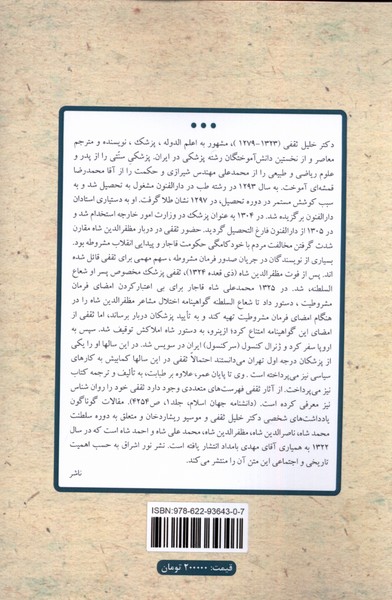 دکتر خلیل ثقفی (۱۳۲۳-۱۲۷۹)، مشهور به اعلم الدوله، پزشک، نویسنده و مترجم
معاصر و از نخستین دانش‌آموختگان رشته پزشکی در ایران. پزشکی سنّتی را از پدر و
علوم ریاضی و طبیعی را از محمدعلی مهندس شیرازی و حکمت را از آقا محمدرضا
قمشه‌ای آموخت. به سال ۱۲۹۳ در رشته طب در دارالفنون مشغول به تحصیل شد و به
سبب کوشش مستمر در دوره تحصیل، در ۱۲۹۷ نشان طلا گرفت. او به دستیاری استادان
دارالفنون برگزیده شد. در ۱۳۰۴ به عنوان پزشک در وزارت امور خارجه استخدام شد و
در ۱۳۰۵ از دارالفنون فارغ التحصیل گردید. حضور ثقفی در دربار مظفرالدین شاه مقارن
شدت گرفتن مخالفت مردم با خودکامگی حکومت قاجار و پیدایی انقلاب مشروطه بود.
بسیاری از نویسندگان در جریان صدور فرمان مشروطه، سهم مهمی برای ثقفی قائل شده
اند. پس از فوت مظفرالدین شاه (ذی قعده ۱۳۲۴)، ثقفی پزشک مخصوص پسر او شعاع
السلطنه، شد. در ۱۳۲۵ محمدعلی شاه قاجار برای بی اعتبارکردن امضای فرمان
مشروطیت، دستور داد تا شعاع السلطنه گواهینامه اختلال مشاعر مظفرالدین شاه را در
هنگام امضای فرمان مشروطیت تهیه کند و به تأیید پزشکان دربار برساند، اما ثقفی از
امضای این گواهینامه امتناع کرد؛ ازینرو، به دستور شاه املاکش توقیف شد. سپس به
اروپا سفر کرد و ژنرال کنسول (سرکنسول) ایران در سویس شد. در این سالها او را یکی
از پزشکان درجه اول تهران می‌دانستند احتمالاً ثقفی در این سالها کمابیش به کارهای
سیاسی نیز می‌پرداخته است. وی تا پایان عمر، علاوه بر طبابت، به تألیف و ترجمه کتاب
نیز می‌پرداخت. از آثار ثقفی فهرست‌های متعددی وجود دارد ثقفی خود را روان شناس
نیز معرفی کرده است. (دانشنامه جهان اسلام، جلد۱، ص۴۲۵۴). مقالات گوناگون
یادداشت‌های شخصی دکتر خلیل ثقفی و موسیو ریشاردخان و متعلق به دوره سلطنت
محمد شاه، ناصرالدین شاه، مظفرالدین شاه، محمد علی شاه و احمد شاه است که در سال
۱۳۲۲ به همیاری آقای مهدی بامداد انتشار یافته است. نشر نور اشراق به حسب اهمیت
تاریخی و اجتماعی این متن آن را منتشر می‌کند.
ناشر
ISBN: 978-622-93643-0-7
قیمت: ۲۰۰۰۰۰ تومان